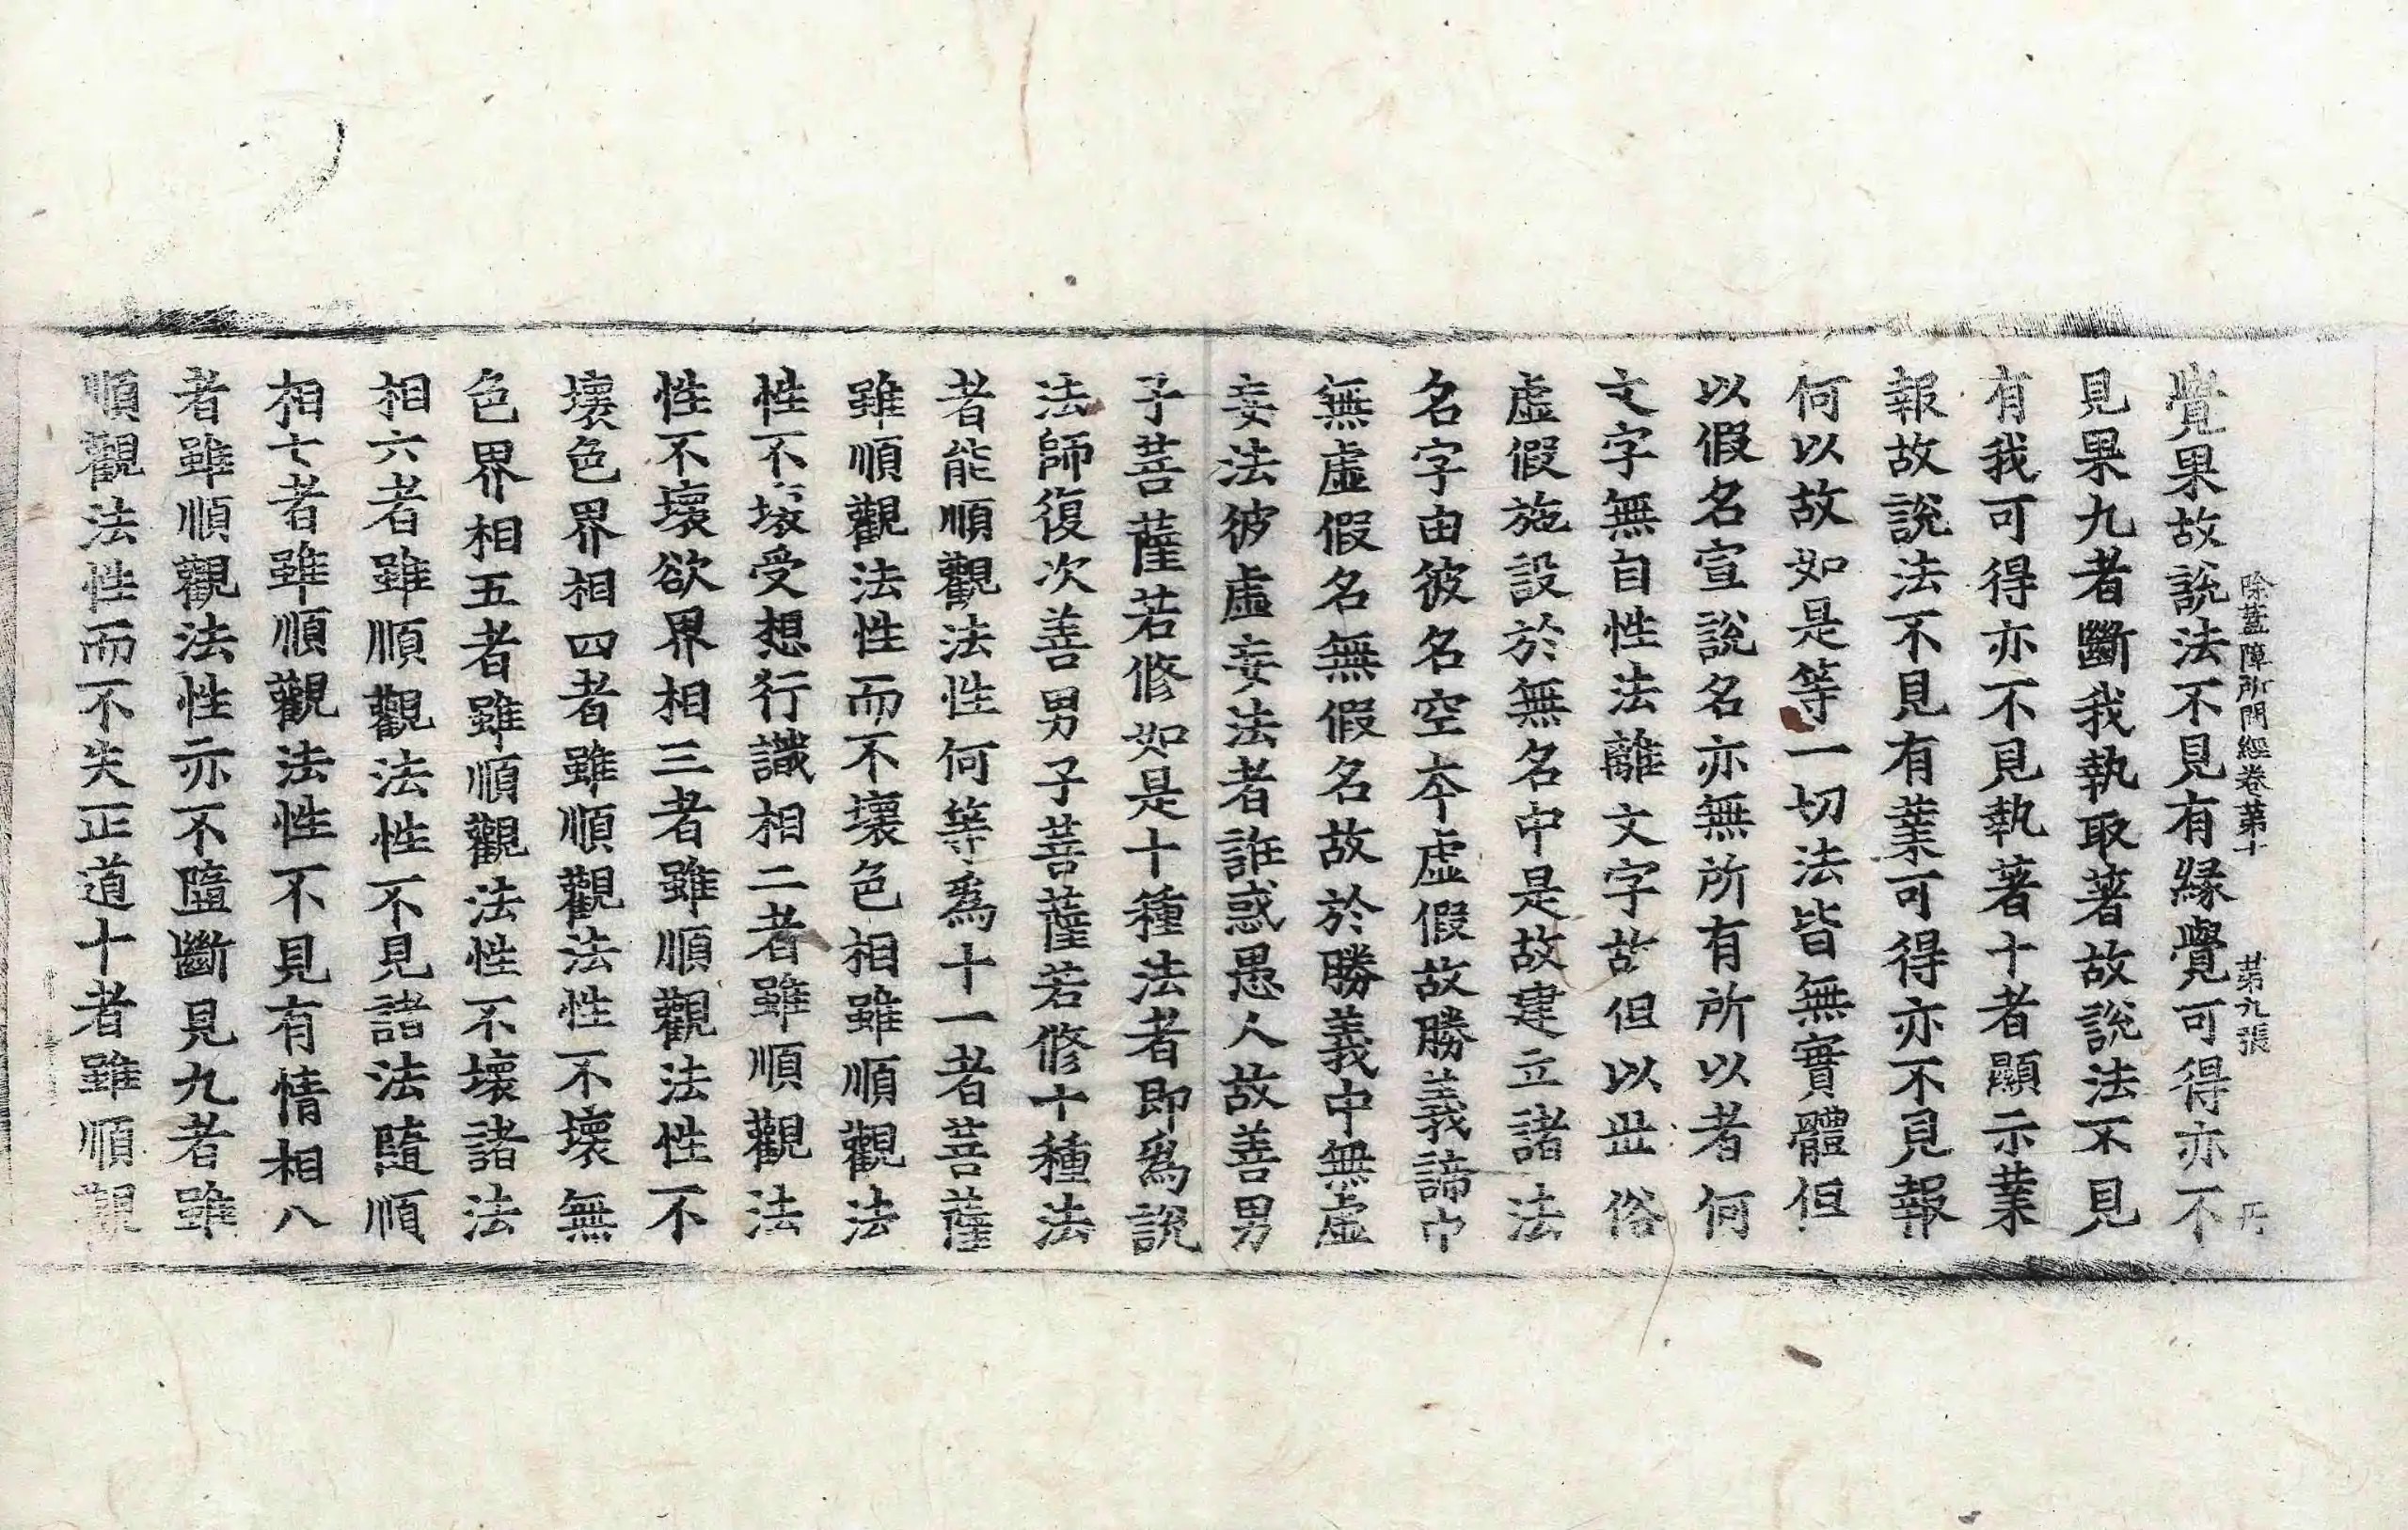 除蓋障所問經卷第十　第九張
覺果故說法不見有緣覺可得亦不
見果九者斷我執取著故說法不見
有我可得亦不見執著十者顯示業
報故說法不見有業可得亦不見報
何以故如是等一切法皆無實體但
以假名宣說名亦無所有所以者何
文字無自性法離文字故但以世俗
虛假施設於無名中是故建立諸法
名字由彼名空本虛假故勝義諦中
無虛假名無假名故於勝義中無虛
妄法彼虛妄法者誑惑愚人故善男
子菩薩若修如是十種法者即爲說
法師復次善男子菩薩若修十種法
者能順觀法性何等爲十一者菩薩
雖順觀法性而不壞色相雖順觀法
性不壞受想行識相二者雖順觀法
性不壞欲界相三者雖順觀法性不
壞色界相四者雖順觀法性不壞無
色界相五者雖順觀法性不壞諸法
相六者雖順觀法性不見諸法隨順
相七者雖順觀法性不見有情相八
者雖順觀法性亦不墮斷見九者雖
順觀法性而不失正道十者雖順觀